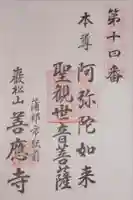 第十四番
本尊 阿弥陀如来
聖観世音菩薩
蒲郡市駅前
巌松山 善應寺